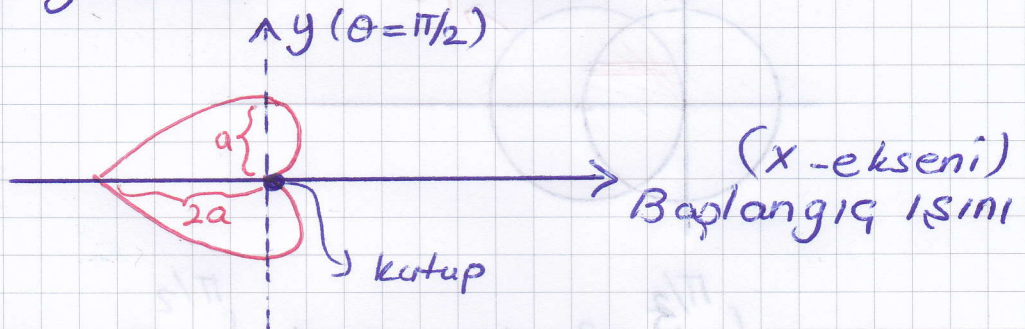 y (θ=π/2)
a
(x-ekseni)
2a
Başlangıç ışını
kutup